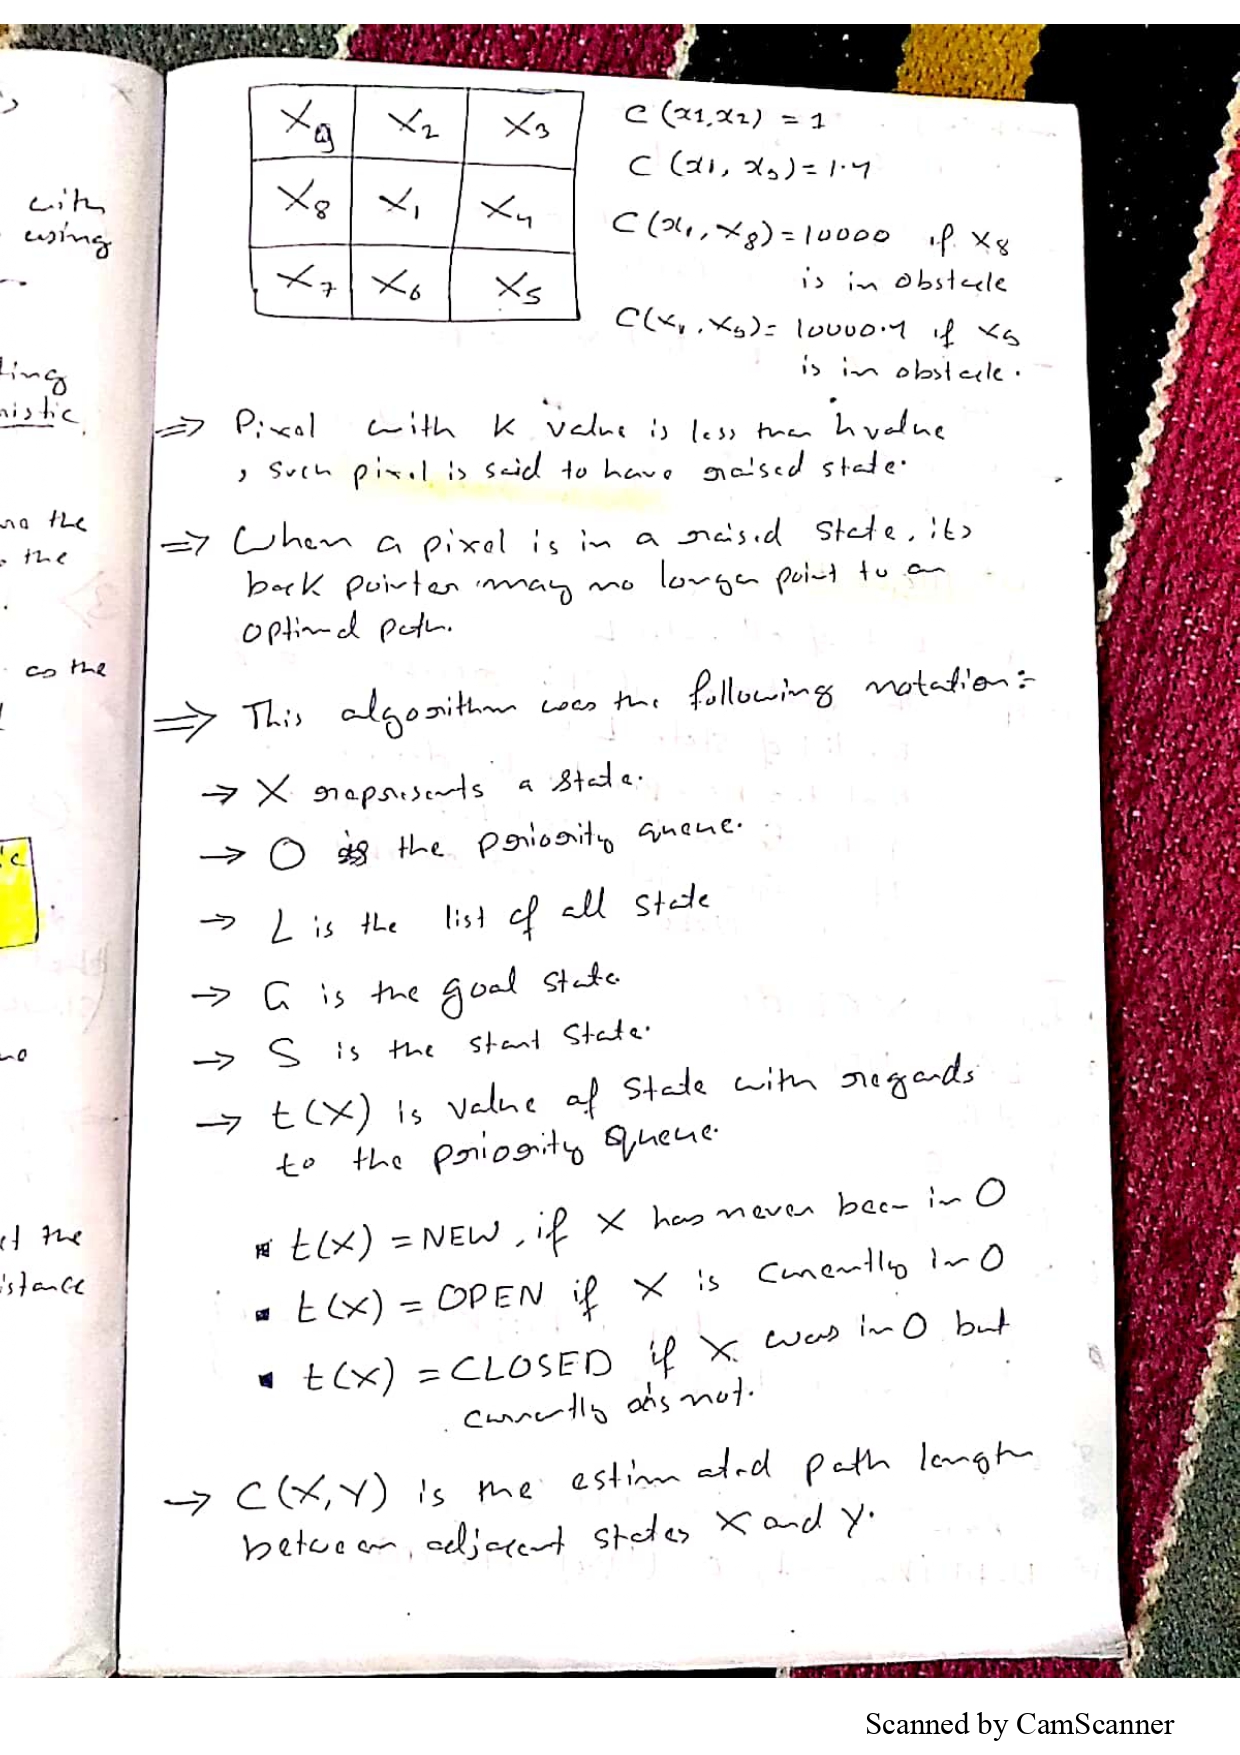 X9 X2 X3
X8 X1 X4
X7 X6 X5
C (x1,x2) = 1
C (x1, x3) = 1.4
C (x1, x8) = 10000 if x8
is in obstacle
C(x1, x9) = 10000.4 if x9
is in obstacle.
⇒ Pixel with K value is less than h value
, such pixel is said to have raised state.
⇒ When a pixel is in a raised state, its
back pointer may no longer point to an
optimal path.
⇒ This algorithm uses the following notation:-
→ X represents a state.
→ O is the priority queue.
→ L is the list of all state
→ G is the goal state
→ S is the start state.
→ t(X) is value of state with regards
to the priority queue.
▪ t(X) = NEW, if X has never been in O
▪ t(X) = OPEN if X is currently in O
▪ t(X) = CLOSED if X was in O but
currently is not.
→ C(X,Y) is the estimated path length
between adjacent states X and Y.
with
using
ting
nistic
the
the
as the
the
istance
Scanned by CamScanner